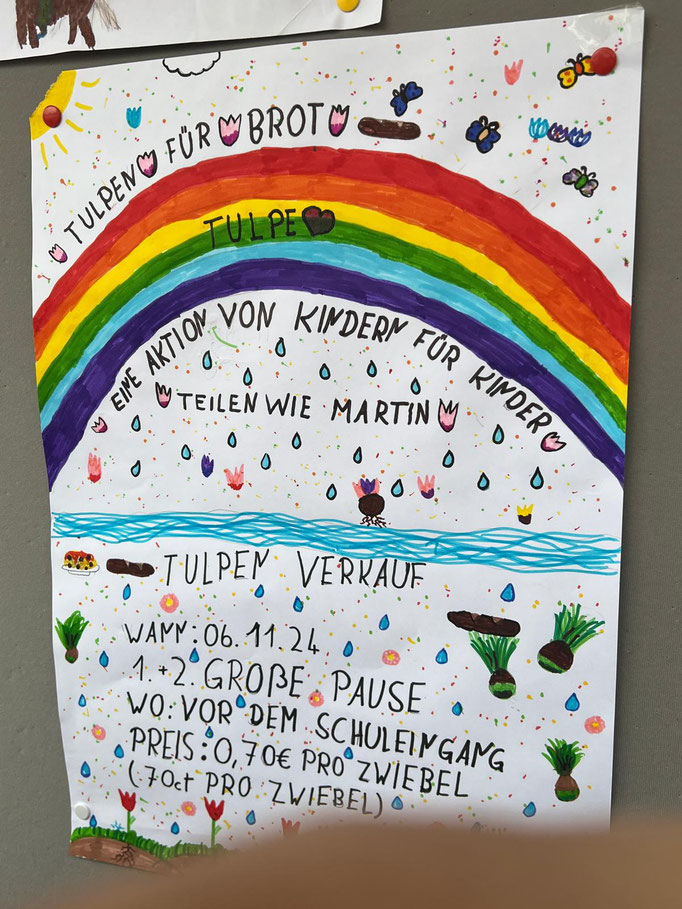 TULPEN FÜR BROT
TULPE
EINE AKTION VON KINDERN FÜR KINDER
TEILEN WIE MARTIN
TULPEN VERKAUF
WANN: 06.11.24
1.+2. GROßE PAUSE
WO: VOR DEM SCHULEINGANG
PREIS: 0,70€ PRO ZWIEBEL
(70ct PRO ZWIEBEL)